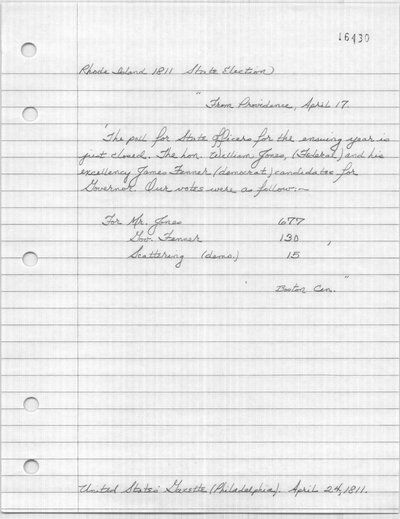 16430
Rhode Island 1811 State Election)
"From Providence, April 17
'The poll for State officers for the ensuing year is
just closed. The hon. William Jones, (Federal) and his
excellency James Fenner (democrat) candidates for
Governor. Our votes were as follow:-
For Mr. Jones 677
Gov. Fenner 130 ,
Scattering (demo.) 15
Boston Cen."
United States' Gazette (Philadelphia). April 24, 1811.